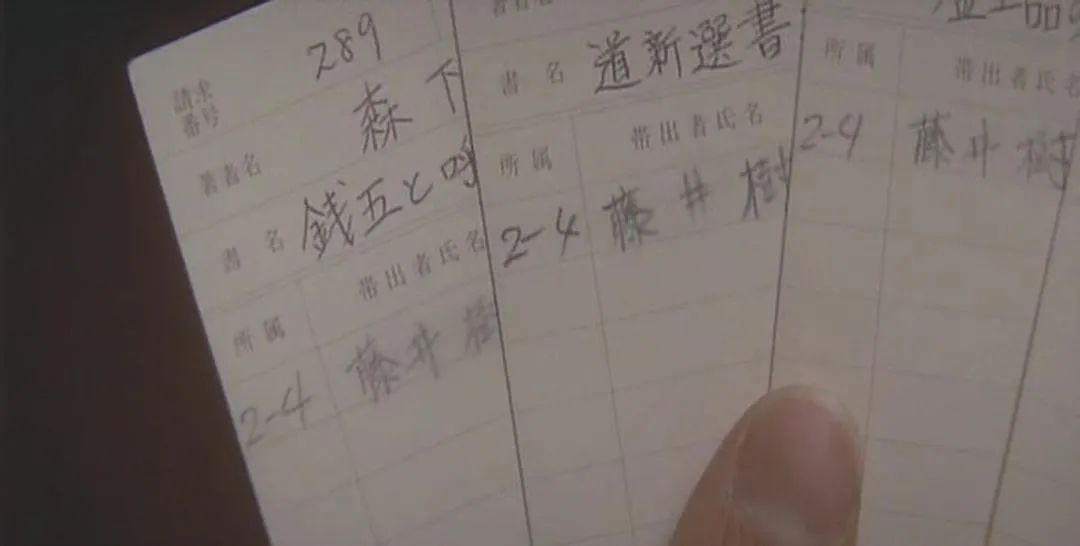 請求番号 289
著者名 森下
書名 銭五と呼
所属 帯出者氏名
2-4 藤井樹
書名 道新選書
所属 帯出者氏名
2-4 藤井樹
所属 帯出者氏名
2-4 藤井樹